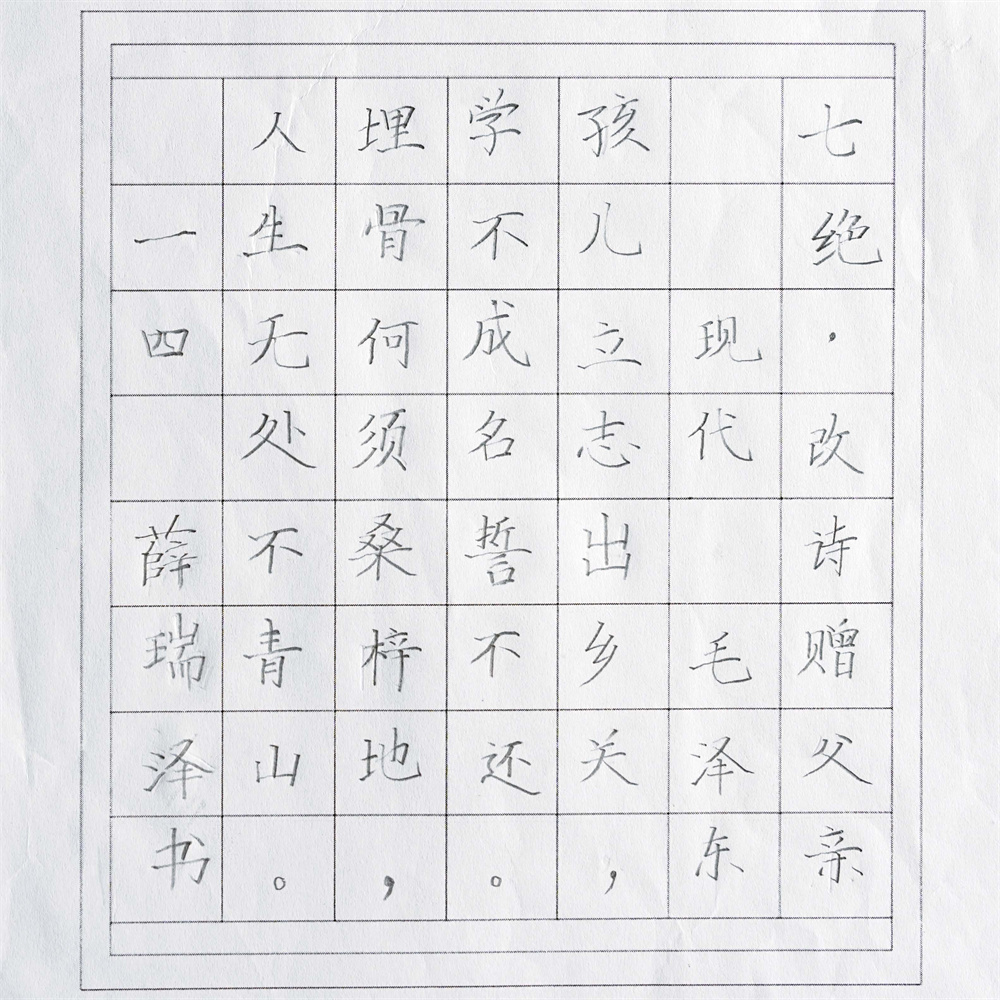 七绝·改诗赠父亲
现代 毛泽东
孩儿立志出乡关，
学不成名誓不还。
埋骨何须桑梓地，
人生无处不青山。
一四 薛瑞泽书